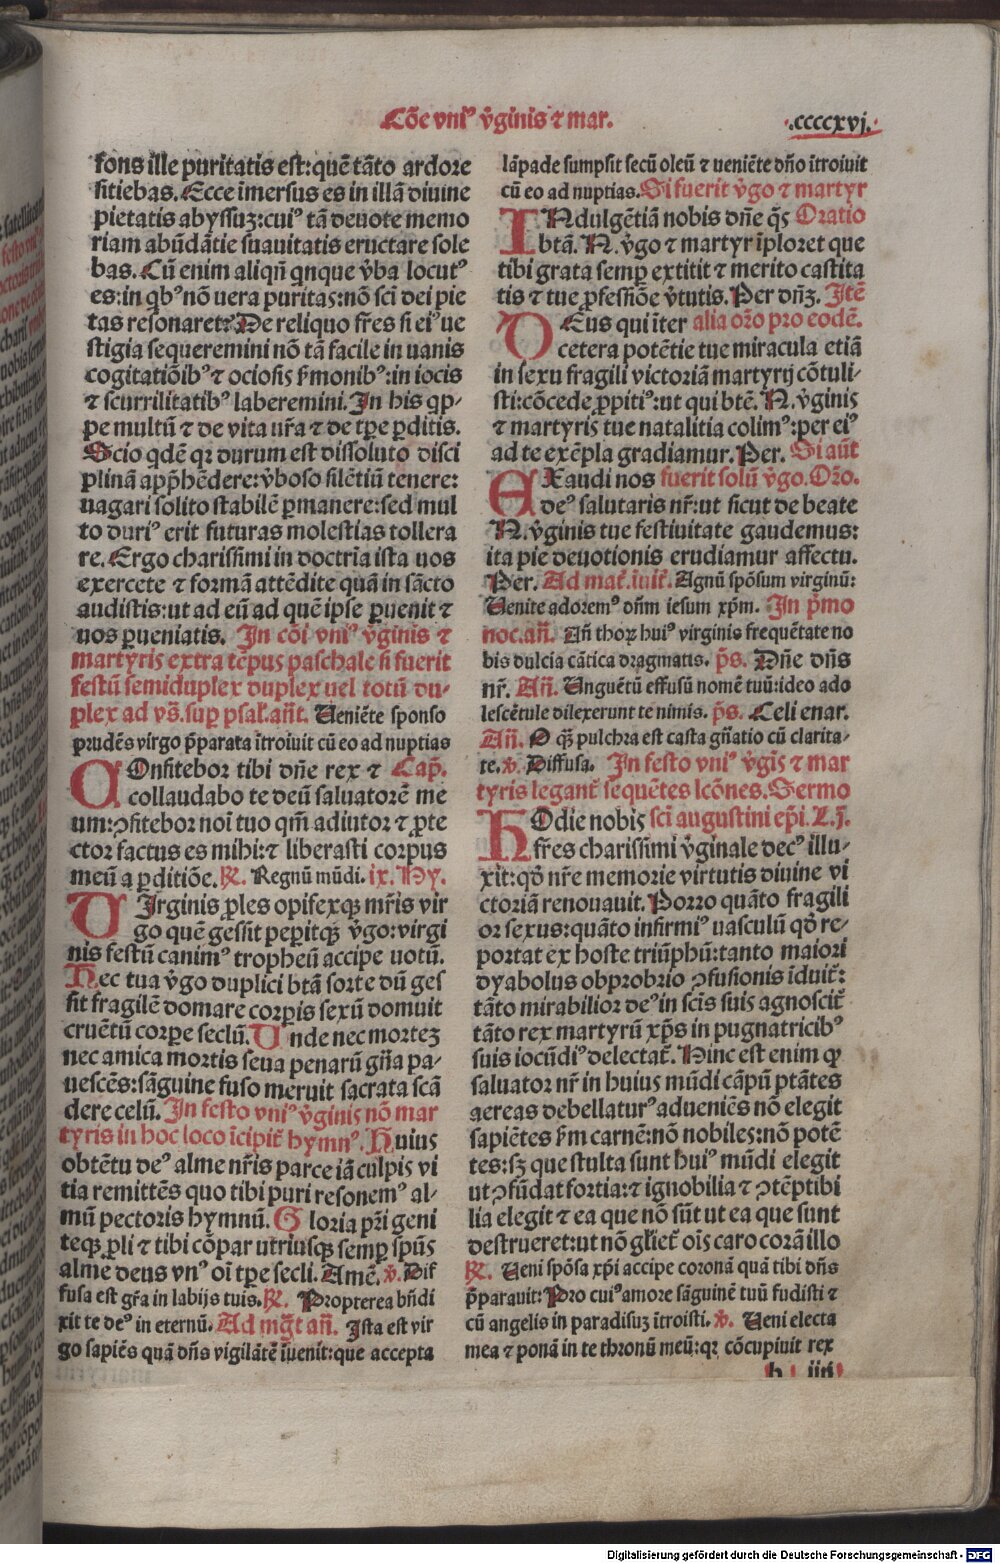 Cõe vniꝰ ṽginis ⁊ mar.
.ccccxvj.
fons ille puritatis est: quẽ tãto ardore
sitiebas. Ecce ĩmersus es in illã diuine
pietatis abyssuȝ: cuiꝰ tã deuote memo
riam abũdãtie suauitatis eructare sole
bas. Cũ enim aliqñ qnque ṽba locutꝰ
es: in qbꝰ nõ uera puritas: nõ sci dei pie
tas resonaret? De reliquo fr̃es si eiꝰ ue
stigia sequeremini nõ tã facile in uanis
cogitatiõibꝰ ⁊ ociosis ẜmonibꝰ: in iocis
⁊ scurrilitatibꝰ laberemini. In his qp-
pe multũ ⁊ de vita ur̃a ⁊ de tp̃e ꝑditis.
Scio qdẽ qꝛ durum est dissoluto disci
plinam app̃hẽdere: ṽboso silẽtiũ tenere:
uagari solito stabilẽ ꝑmanere: sed mul
to duriꝰ erit futuras molestias tollera
re. Ergo charissimi in doctrĩa ista uos
exercete ⁊ formã attẽdite quã in sãcto
audistis: ut ad eũ ad quẽ ipse ꝑuenit ⁊
uos ꝑueniatis. In cõi vniꝰ ṽginis ⁊
martyris extra tẽpus paschale si fuerit
festũ semiduplex duplex uel totũ du-
plex ad vs̃. sup psal̃. añt. Ueniẽte sponso
prudẽs virgo p̃parata ĩtroiuit cũ eo ad nuptias
COnfitebor tibi dñe rex ⁊ Cap̃.
collaudabo te deũ saluatorẽ me
um: ꝯfitebor noĩ tuo qm̃ adiutor ⁊ ꝓte
ctor factus es mihi: ⁊ liberasti corpus
meũ a ꝑditiõe. ℟. Regnũ mũdi. ix. Hy.
UIrginis ꝓles opifexqȝ mr̃is vir
go quẽ gessit peperitqȝ ṽgo: virgi
nis festũ canimꝰ tropheũ accipe uotũ.
Hec tua ṽgo duplici btã sorte dũ ges
sit fragilẽ domare corpis sexũ domuit
cruẽtũ corpe seclũ. Unde nec morteȝ
nec amica mortis seua penarũ gñã pa-
uescẽs: sãguine fuso meruit sacrata scã
dere celũ. In festo vniꝰ ṽginis nõ mar
tyris in hoc loco ĩcipit̃ hymnꝰ. Huius
obtẽtu deꝰ alme nr̃is parce iã culpis vi
tia remittẽs quo tibi puri resonemꝰ al-
mũ pectoris hymnũ. Gloria pr̃i geni
teqȝ ꝓli ⁊ tibi cõpar utriusqȝ semp spũs
alme deus vnꝰ oĩ tp̃e secli. Amẽ. ℣. Dif
fusa est gr̃a in labijs tuis. ℟. Propterea bñdi
xit te deꝰ in eternũ. Ad mgt̃ añ. Ista est vir
go sapiẽs quã dñs vigilãtẽ ĩuenit: que accepta
lãpade sumpsit secũ oleũ ⁊ ueniẽte dño ĩtroiuit
cũ eo ad nuptias. Si fuerit ṽgo ⁊ martyr
INdulgẽtiã nobis dñe qs̃ Oratio
btã. N. ṽgo ⁊ martyr ĩploret que
tibi grata semp extitit ⁊ merito castita
tis ⁊ tue ꝓfessiõe ṽtutis. Per dñȝ. Itẽ
DEus qui ĩter alia orõ pro eodẽ.
cetera potẽtie tue miracula etiã
in sexu fragili victoriã martyrij cõtuli-
sti: cõcede ꝓpitiꝰ: ut qui btẽ. N. ṽginis
⁊ martyris tue natalitia colimꝰ: per eiꝰ
ad te exẽpla gradiamur. Per. Si aũt
EXaudi nos fuerit solũ ṽgo. Orõ.
deꝰ salutaris nr̃: ut sicut de beate
N. ṽginis tue festiuitate gaudemus:
ita pie deuotionis erudiamur affectu.
Per. Ad mat̃. ĩuit̃. Agnũ spõsum virginũ:
Uenite adoremꝰ dñm iesum xp̃m. In p̃mo
noc. añ. Añ thoꝛ huiꝰ virginis frequẽtate no
bis dulcia cãtica dragmatis. ps̃. Dñe dñs
nr̃. Añ. Unguẽtũ effusũ nomẽ tuũ: ideo ado
lescẽtule dilexerunt te nimis. ps̃. Celi enar.
Añ. O qȝ pulchra est casta gñatio cũ clarita-
te. ℣. Diffusa. In festo vniꝰ ṽgis̃ ⁊ mar
tyris legant̃ sequẽtes lcões. Sermo
HOdie nobis sci augustini ep̃i. L. j.
fr̃es charissimi ṽginale decꝰ illu-
xit: qõ nr̃e memorie virtutis diuine vi
ctoriã renouauit. Porro quãto fragili
or sexus: quãto infirmiꝰ uasculũ qõ re-
portat ex hoste triũphũ: tanto maiori
dyabolus obprobrio ꝯfusionis ĩduit̃:
tãto mirabilior deꝰ in scis suis agnoscit̃
tãto rex martyrũ xp̃s in pugnatricibꝰ
suis iocũdiꝰ delectat̃. Hinc est enim qꝙ
saluator nr̃ in huius mũdi cãpũ ptãtes
aereas debellaturꝰ adueniẽs nõ elegit
sapiẽtes ẜm carnẽ: nõ nobiles: nõ potẽ
tes: sȝ que stulta sunt huiꝰ mũdi elegit
ut ꝯfũdat fortia: ⁊ ignobilia ⁊ ꝯtẽptibi
lia elegit ⁊ ea que nõ sũt ut ea que sunt
destrueret: ut nõ gl̃iet̃ oĩs caro corã illo
℟. Ueni spõsa xp̃i accipe coronã quã tibi dñs
p̃parauit: Pro cuiꝰ amore sãguinẽ tuũ fudisti ⁊
cũ angelis in paradisuȝ ĩtroisti. ℣. Ueni electa
mea ⁊ ponã in te thronũ meũ: qꝛ cõcupiuit rex
h iiij
Digitalisierung gefördert durch die Deutsche Forschungsgemeinschaft - DFG